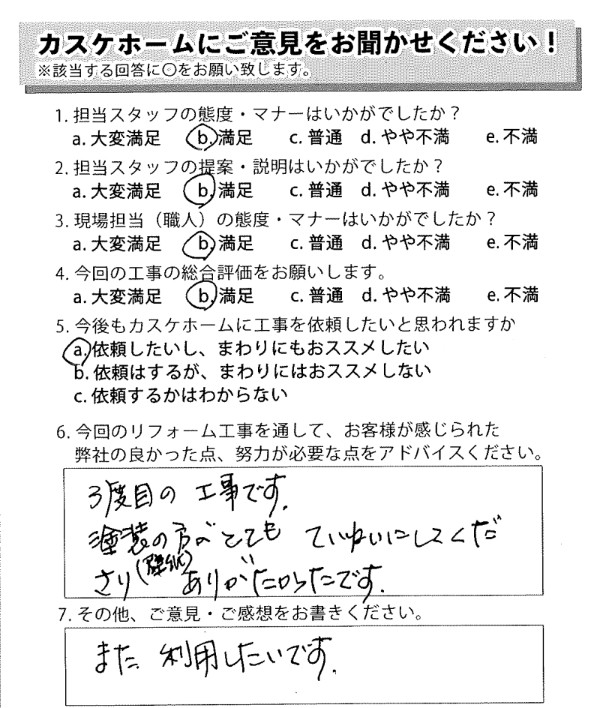 カスケホームにご意見をお聞かせください！
※該当する回答に○をお願い致します。
1. 担当スタッフの態度・マナーはいかがでしたか？
a. 大変満足 b. 満足 c. 普通 d. やや不満 e. 不満
2. 担当スタッフの提案・説明はいかがでしたか？
a. 大変満足 b. 満足 c. 普通 d. やや不満 e. 不満
3. 現場担当（職人）の態度・マナーはいかがでしたか？
a. 大変満足 b. 満足 c. 普通 d. やや不満 e. 不満
4. 今回の工事の総合評価をお願いします。
a. 大変満足 b. 満足 c. 普通 d. やや不満 e. 不満
5. 今後もカスケホームに工事を依頼したいと思われますか
a. 依頼したいし、まわりにもおススメしたい
b. 依頼はするが、まわりにはおススメしない
c. 依頼するかはわからない
6. 今回のリフォーム工事を通して、お客様が感じられた
弊社の良かった点、努力が必要な点をアドバイスください。
3度目の工事です。
塗装の方がとても ていねいにしてくだ
さり ありがたかったです。
7. その他、ご意見・ご感想をお書きください。
また 利用したいです。